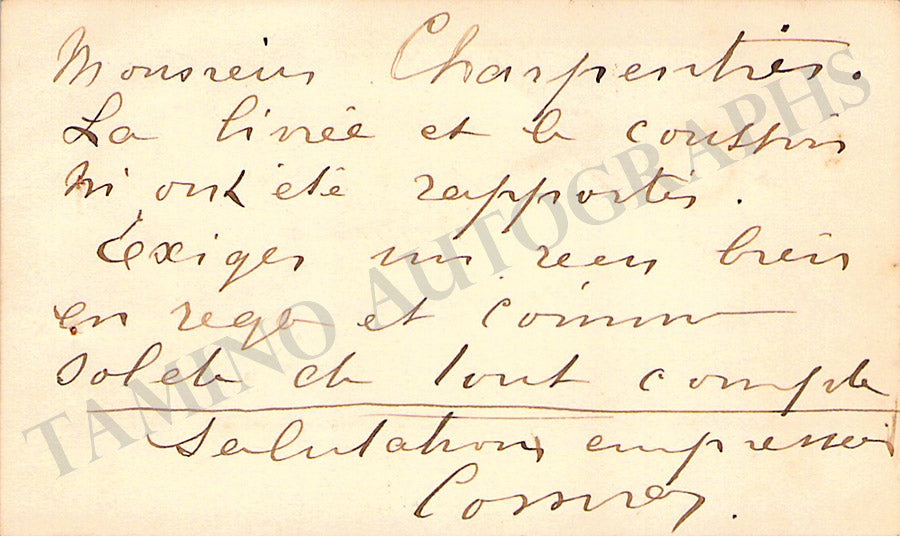 Monsieur Charpentier.
La livrée et le coussin
m'ont été rapportés.
Exigez un reçu bien
en regle et comme
solde de tout compte
Salutations empressées
TAMINO AUTOGRAPHS